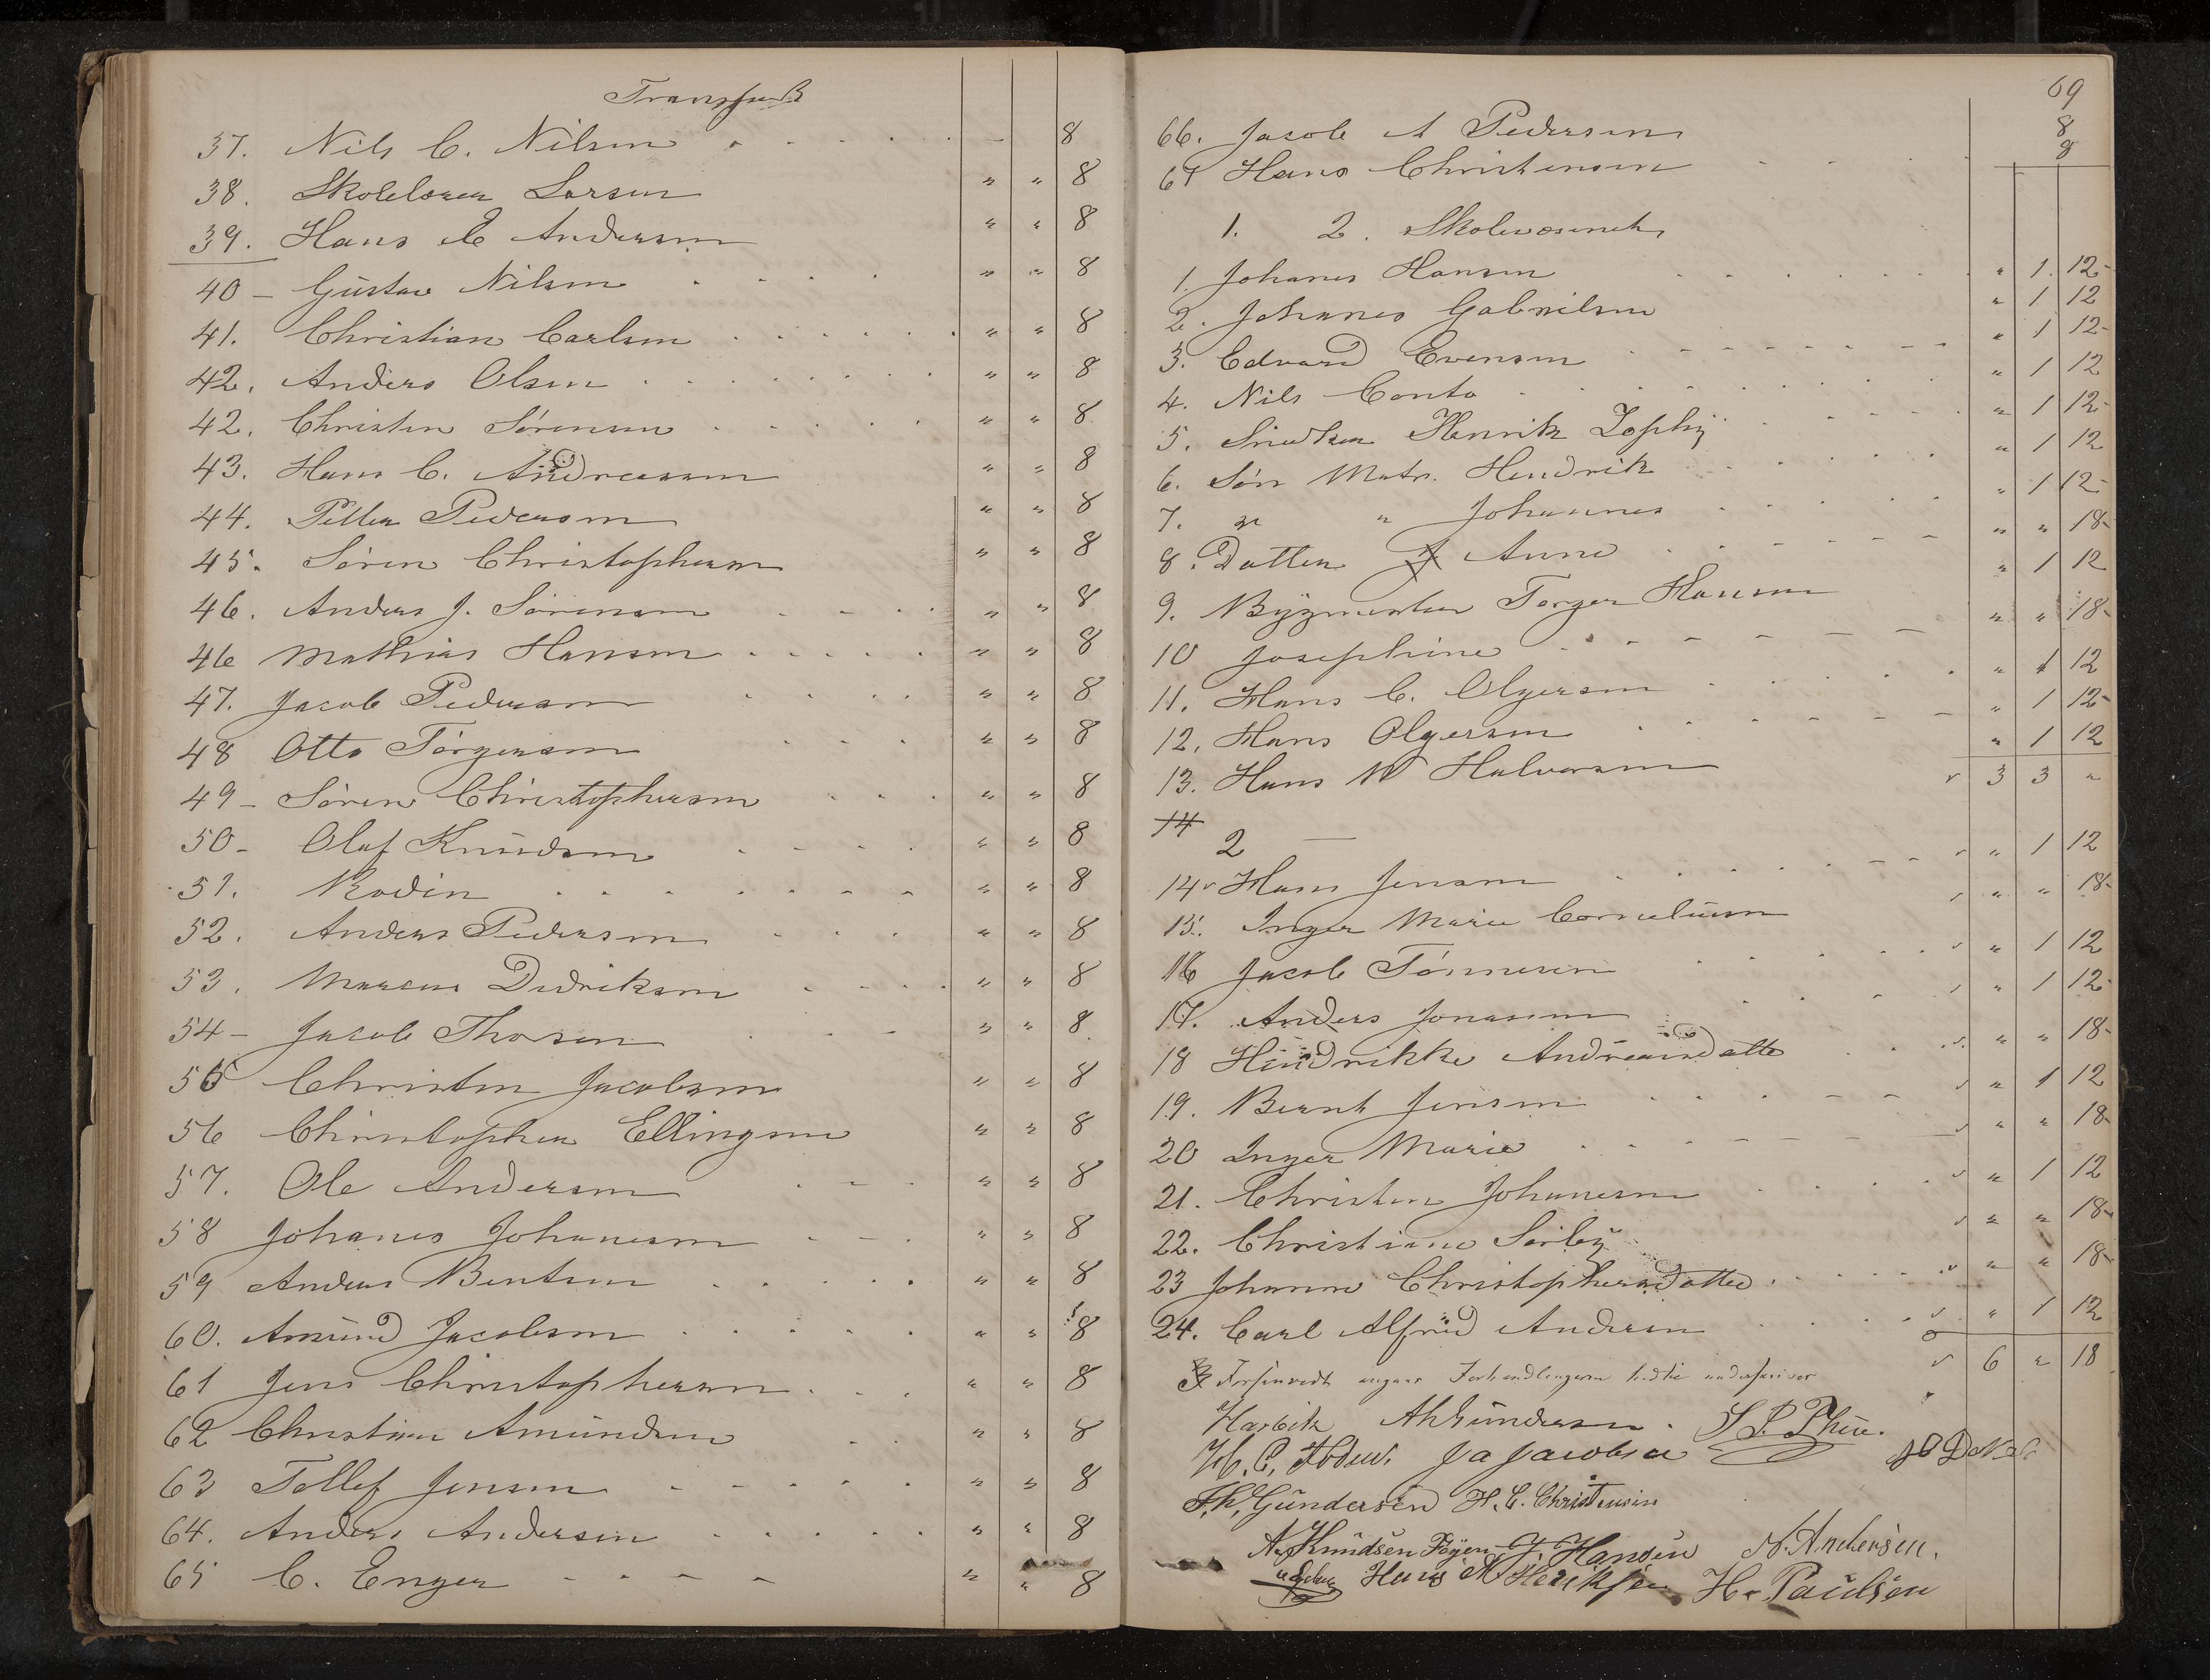 Transport
37. Nils C. Nilsen 8
38. Skolelærer Larsen " " 8
39. Hans C Andersen " " 8
40 - Gustav Nilsen " " 8
41. Christian Carlsen " " 8
42. Anders Olsen " " 8
42. Christen Sörensen " " 8
43. Hans C. Andreassen " " 8
44. Petter Pedersen " " 8
45. Sören Christophersen " " 8
46. Anders J. Sörensen " " 8
46 Mathias Hansen " " 8
47. Jacob Pedersen " " 8
48 Otto Törgersen " " 8
49 - Sören Christophersen " " 8
50 - Olaf Knudsen " " 8
51. Rodin " " 8
52. Anders Pedersen " " 8
53. Marcus Didriksen " " 8
54 - Jacob Thosen " " 8
55 Christen Jacobsen " " 8
56 Christopher Ellingsen " " 8
57. Ole Andersen " " 8
58 Johanes Johanesen " " 8
59 Anders Bentsen " " 8
60. Amund Jacobsen " " 8
61 Jens Christophersen " " 8
62 Christian Amundsen " " 8
63 Tollef Jensen " " 8
64. Anders Andersen " " 8
65 C. Enger " " 8
69
66. Jacob A Pedersen 8
67 Hans Christensen 8
1. 2. Skolevæsenet
1. Johanes Hansen " 1. 12
2. Johanes Gabrilsen " 1 12
3. Edvard Evensen " 1 12
4. Nils Conto " 1 12
5. Snedker Henrik " 1 12
6. Sön Matr. Hendrik " 1 12
7. " " Johannes " 1 12
8. Datter Anne " " 18
9. Bygmester Torger Hansen " 1 12
10 Josephine " " 18
11. Hans C. Olgersen " 1 12
12. Hans Olgersen " 1 12
13. Hans N Halvorsen " 1 12
3 3 "
14
2 —
14 Hans Jensen " 1 12
15. Inger Marie Corneliusen " " 18
16 Jacob Tönnesen " 1 12
17. Anders Jonassen " 1 12
18 Hendrikke Andreasdatter " " 18
19. Bernt Jensen " 1 12
20 Inger Marie " " 18
21. Christen Johanesen " 1 12
22. Christiane Sörby " " 18
23 Johanne Christophersdatter " " 18
24. Carl Alfred Andersen " 1 12
6 " 18
Forhandlingerne
Harbitz A Gundersen.
H. C. J A Jacobsen
Th. Gundersen H. C. Christensen
A. Knudsen Föyen Hansen N. Andersen.
Hans A Heriksen H. Paulsen